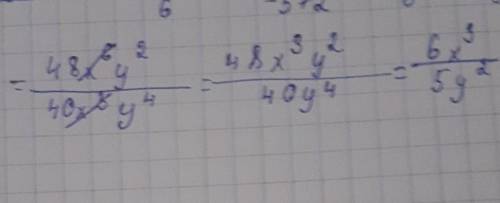 = 48x⁶y² / 40x³y⁴ = 48x³y² / 40y⁴ = 6x³ / 5y²